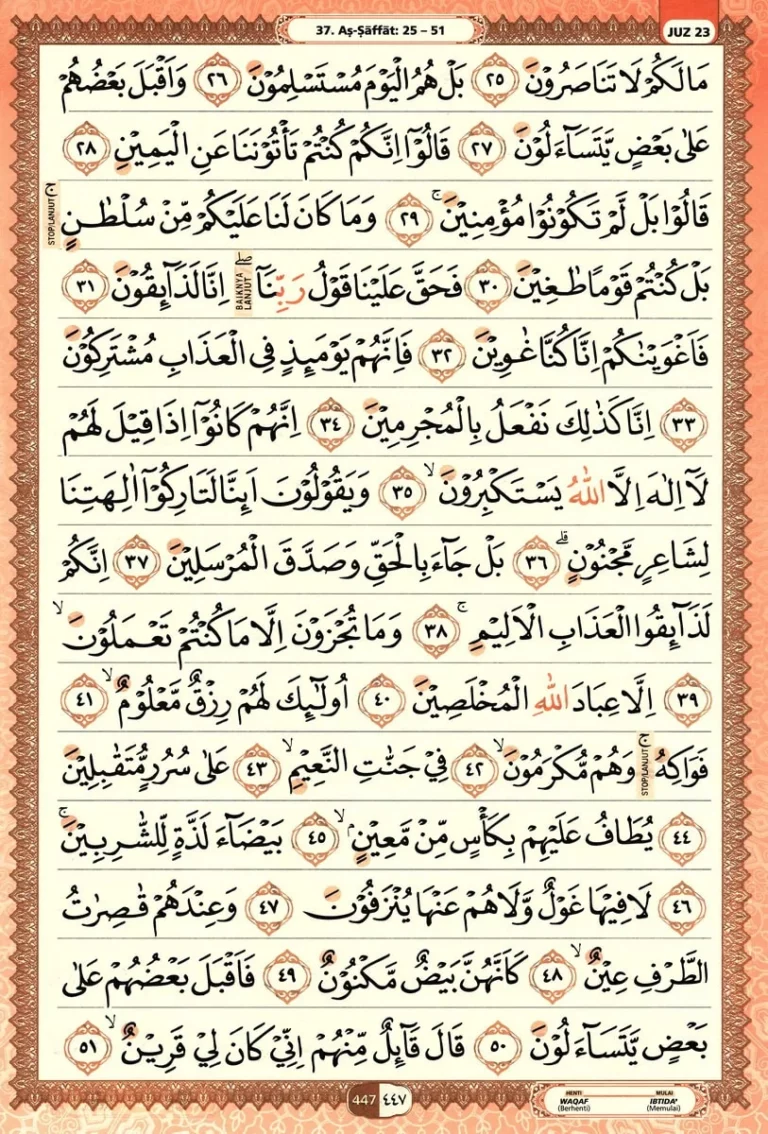 37. Aṣ-Ṣāffāt: 25 – 51
JUZ 23
مَا لَكُمْ لَا تَنَاصَرُوْنَ ٢٥ بَلْ هُمُ الْيَوْمَ مُسْتَسْلِمُوْنَ ٢٦ وَاَقْبَلَ بَعْضُهُمْ
عَلٰى بَعْضٍ يَّتَسَاۤءَلُوْنَ ٢٧ قَالُوْٓا اِنَّكُمْ كُنْتُمْ تَأْتُوْنَنَا عَنِ الْيَمِيْنِ ٢٨
قَالُوْا بَلْ لَّمْ تَكُوْنُوْا مُؤْمِنِيْنَۚ ٢٩ وَمَا كَانَ لَنَا عَلَيْكُمْ مِّنْ سُلْطٰنٍۚ STOP/LANJUT
بَلْ كُنْتُمْ قَوْمًا طٰغِيْنَ ٣٠ فَحَقَّ عَلَيْنَا قَوْلُ رَبِّنَآ ۖ BAIKNYA LANJUT اِنَّا لَذَاۤىِٕقُوْنَ ٣١
فَاَغْوَيْنٰكُمْ اِنَّا كُنَّا غٰوِيْنَ ٣٢ فَاِنَّهُمْ يَوْمَىِٕذٍ فِى الْعَذَابِ مُشْتَرِكُوْنَ
٣٣ اِنَّا كَذٰلِكَ نَفْعَلُ بِالْمُجْرِمِيْنَ ٣٤ اِنَّهُمْ كَانُوْٓا اِذَا قِيْلَ لَهُمْ
لَآ اِلٰهَ اِلَّا اللّٰهُ يَسْتَكْبِرُوْنَۙ ٣٥ وَيَقُوْلُوْنَ اَىِٕنَّا لَتَارِكُوْٓا اٰلِهَتِنَا
لِشَاعِرٍ مَّجْنُوْنٍۗ ٣٦ بَلْ جَاۤءَ بِالْحَقِّ وَصَدَّقَ الْمُرْسَلِيْنَ ٣٧ اِنَّكُمْ
لَذَاۤىِٕقُوا الْعَذَابِ الْاَلِيْمِۚ ٣٨ وَمَا تُجْزَوْنَ اِلَّا مَا كُنْتُمْ تَعْمَلُوْنَۙ
٣٩ اِلَّا عِبَادَ اللّٰهِ الْمُخْلَصِيْنَ ٤٠ اُولٰۤىِٕكَ لَهُمْ رِزْقٌ مَّعْلُوْمٌۙ ٤١
فَوَاكِهُۚ STOP/LANJUT وَهُمْ مُّكْرَمُوْنَۙ ٤٢ فِيْ جَنّٰتِ النَّعِيْمِۙ ٤٣ عَلٰى سُرُرٍ مُّتَقٰبِلِيْنَ
٤٤ يُطَافُ عَلَيْهِمْ بِكَأْسٍ مِّنْ مَّعِيْنٍۢۙ ٤٥ بَيْضَاۤءَ لَذَّةٍ لِّلشّٰرِبِيْنَۚ
٤٦ لَا فِيْهَا غَوْلٌ وَّلَا هُمْ عَنْهَا يُنْزَفُوْنَ ٤٧ وَعِنْدَهُمْ قٰصِرٰتُ
الطَّرْفِ عِيْنٌۙ ٤٨ كَاَنَّهُنَّ بَيْضٌ مَّكْنُوْنٌ ٤٩ فَاَقْبَلَ بَعْضُهُمْ عَلٰى
بَعْضٍ يَّتَسَاۤءَلُوْنَ ٥٠ قَالَ قَاۤىِٕلٌ مِّنْهُمْ اِنِّيْ كَانَ لِيْ قَرِيْنٌۙ ٥١
447 ٤٤٧
HENTI MULAI
WAQAF IBTIDA'
(Berhenti) (Memulai)